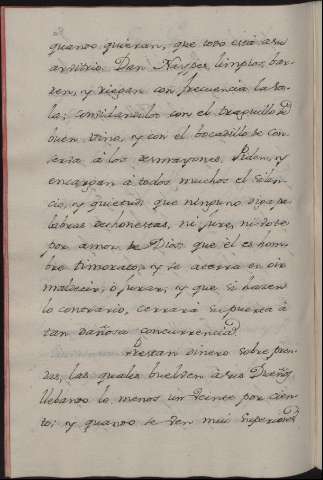 quando quieran, que todo está à su
arvitrio. Dan Naypes limpios, bar-
ren, y riegan con frecuencia la sa-
la; combidandolos con el traguillo de
buen vino, y con el bocadillo de con-
serva à los desmayones. Piden, y
encargan à todos muchos el silen-
cio, y quietud: que ninguno diga pa-
labras deshonestas, ni jure, ni vote
por amor de Dios: que él es hom-
bre timorato, y se aterra en oir
maldecir, ò jurar; y que si hacen
lo contrario, cerrará su puerta à
tan dañosa concurrencia.
Prestan dinero sobre pren-
das, las quales buelven à sus Dueños
llebando lo menos un veinte por cien-
to; y quando se ven mui superiores